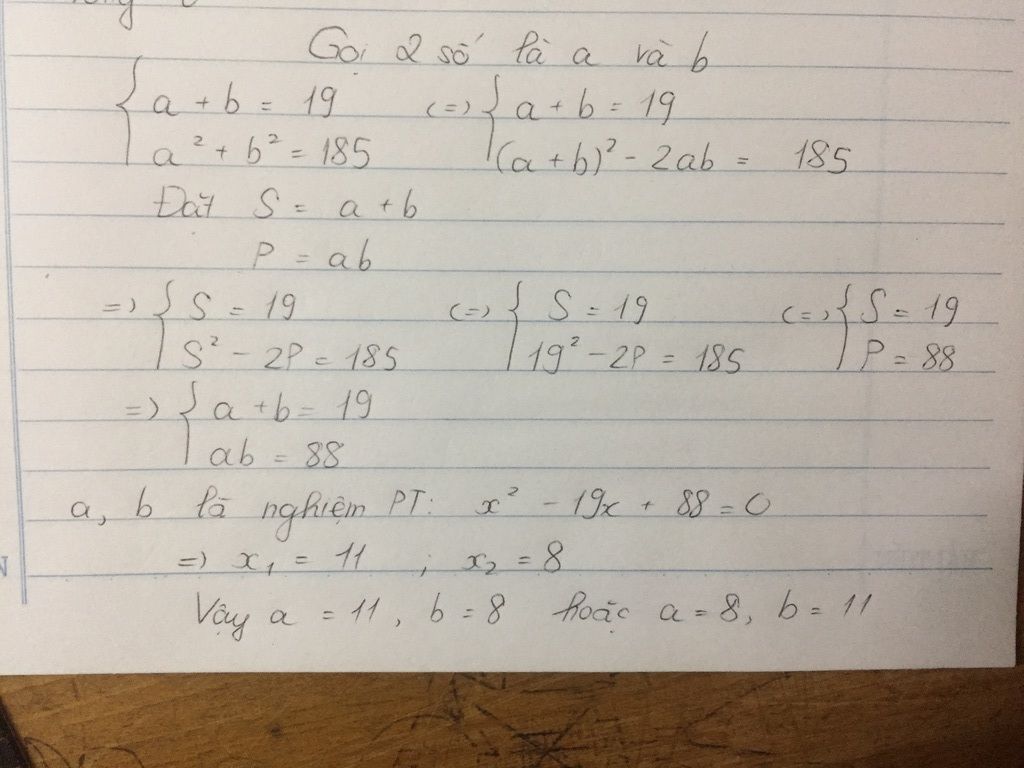 Gọi 2 số là a và b
{ a + b = 19 (=) { a + b = 19
a² + b² = 185 (a + b)² - 2ab = 185
Đặt S = a + b
P = ab
=) { S = 19 (=) { S = 19 (=) { S = 19
S² - 2P = 185 19² - 2P = 185 P = 88
=) { a + b = 19
ab = 88
a, b là nghiệm PT: x² - 19x + 88 = 0
=) x₁ = 11 ; x₂ = 8
Vậy a = 11, b = 8 hoặc a = 8, b = 11